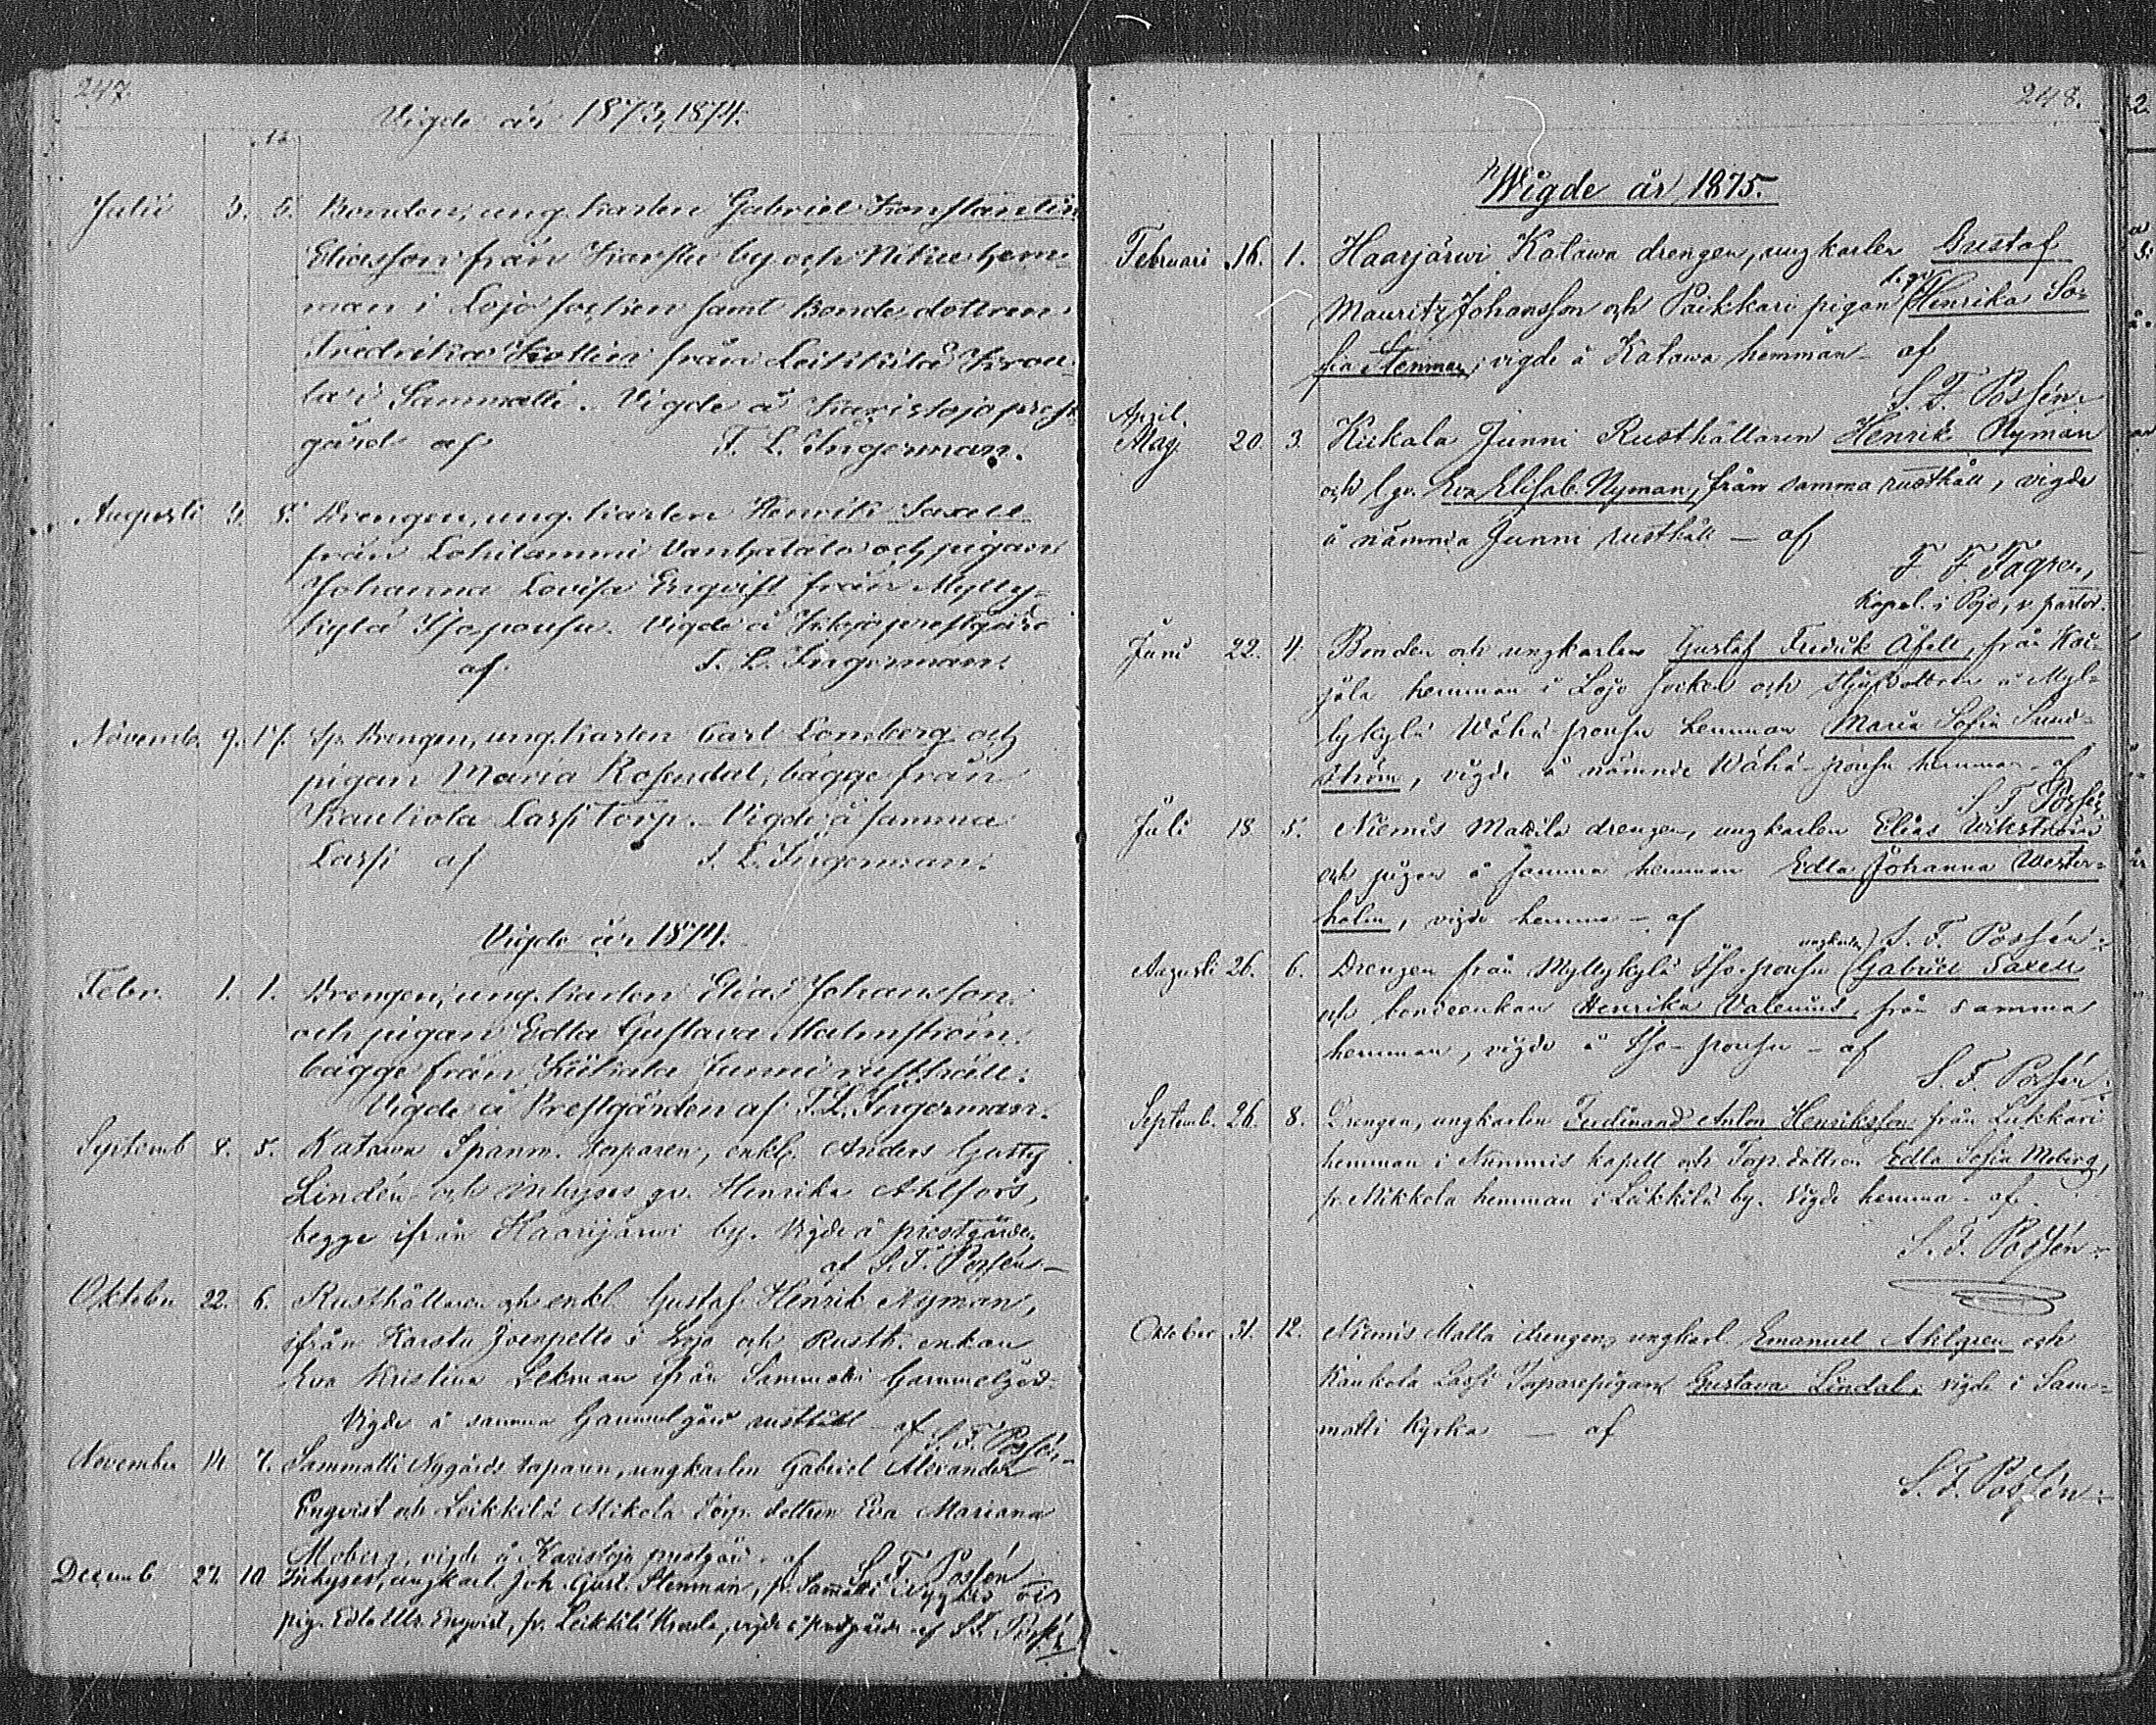 247.
Vigde år 1873, 1874.
Julii 3. 5. Bonden, ung.karlen Gabriel Konstantin
Eliasson från Karstu by och hem-
man i Lojo socken samt Bonde dottren
Fredrika från Leikkilä Krou-
la i Sammatti. Vigde å Karislojo prest-
gård af T. L. Ingerman.
Augusti 3. 8. Drengen, ung.karlen Henrik Saxell
från Lohilammi Vanhatalo och pigan
Johanna Lovisa Enqvist från Mylly-
kylä Isoponsu. Vigde å prestgård
af T. L. Ingerman.
Novemb. 9. 17. Sp. Drengen, ung.karlen Carl Lonsberg och
pigan Maria Rosendal, bägge från
Kaukola Lassi Torp. Vigde å samma
Lassi af T. L. Ingerman.
Vigde år 1874.
Febr. 1. 1. Drengen, ung.karlen Elias Johansson
och pigan Edla Gustava Malmström,
bägge från Kiikala Junni rusthåll.
Vigde å Prestgården af T. L. Ingerman.
Septemb 8. 5. Katawa Spanm. torparen, enkl. Anders Gustaf
Lindén och inhyses qv. Henrika Ahlfors,
begge ifrån Haarijärwi by. Vigde å prestgården
af S. F. Possén.
Oktober 22. 6. Rusthållaren och enkl. Gustaf Henrik Nyman,
ifrån Karstu Joenpelto i Lojo och Rusth. enkan
Eva Kristina Lekman ifrån Sammatti Gammelgård.
Vigde å samma Gammelgård rusthåll - af S. F. Possén.
November 14 7. Sammatti Nygårds torparen, ungkarlen Gabriel Alexander
Enqvist och Leikkilä Mikola torp. dottren Eva Mariana
Moberg, vigde å Karislojo prestgård. af S. F. Possén
Decemb 27. 10 Inhyses, ungkarl. Joh. Gust. Stenman, fr. Sammatti Nygård och
pig. Edla Ulr. Enqvist, fr. Leikkilä Kroula, vigde i prestgården af S. F. Possén
248.
Wigde år 1875.
Februari 16. 1. Haarjärwi Katawa drengen, ungkarlen Gustaf
Mauritz Johansson och Paikkari pigan Henrika So-
fia Stenman, vigde å Katawa hemman - af
S. F. Possén.
April.
Maj 20. 3. Kiikala Junni Rusthållaren Henrik Nyman
och l. qv. Eva Elisab. Nyman, från samma rusthåll, vigde
å nämnda Junni rusthåll - af
F. F. Fagren,
Kapel. i Pojo, v. pastor.
Juni 22. 4. Bonden och ungkarlen Gustaf Fredrik Åfelt, från Koi-
jola hemman i Lojo socken och styfdottren å Myl-
lykylä Wähä ponsu hemman Maria Sofia Sund-
ström, vigde å nämnde Wähä-ponsu hemman - af
S. F. Possén
Juli 18 5. Niemis Mattila drengen, ungkarlen Elias Wikström
och pigan å samma hemman Edla Johanna Wester-
holm, vigde hemma - af
S. F. Possén.
Augusti 26. 6. Drengen från Myllykylä Iso-ponsu ungkarlen Gabriel Saxell
och bondeenkan Henrika Valenius, från samma
hemman, vigde å Iso-ponsu - af
S. F. Possén.
Septemb. 26. 8. Drengen, ungkarlen Ferdinand Anton Henriksson från Lukkari
hemman i Nummis kapell och Torp. dottren Edla Sofia Moberg,
fr. Mikkola hemman i Leikkilä by. Vigde hemma - af
S. F. Possén.
Oktober 31. 12. Niemis Matta drengen, ungkarl. Emanuel Ahlgren och
Kaukola Lassi Torparepigan Gustava Lindal, vigde i Sam-
matti Kyrka - af
S. F. Possén.